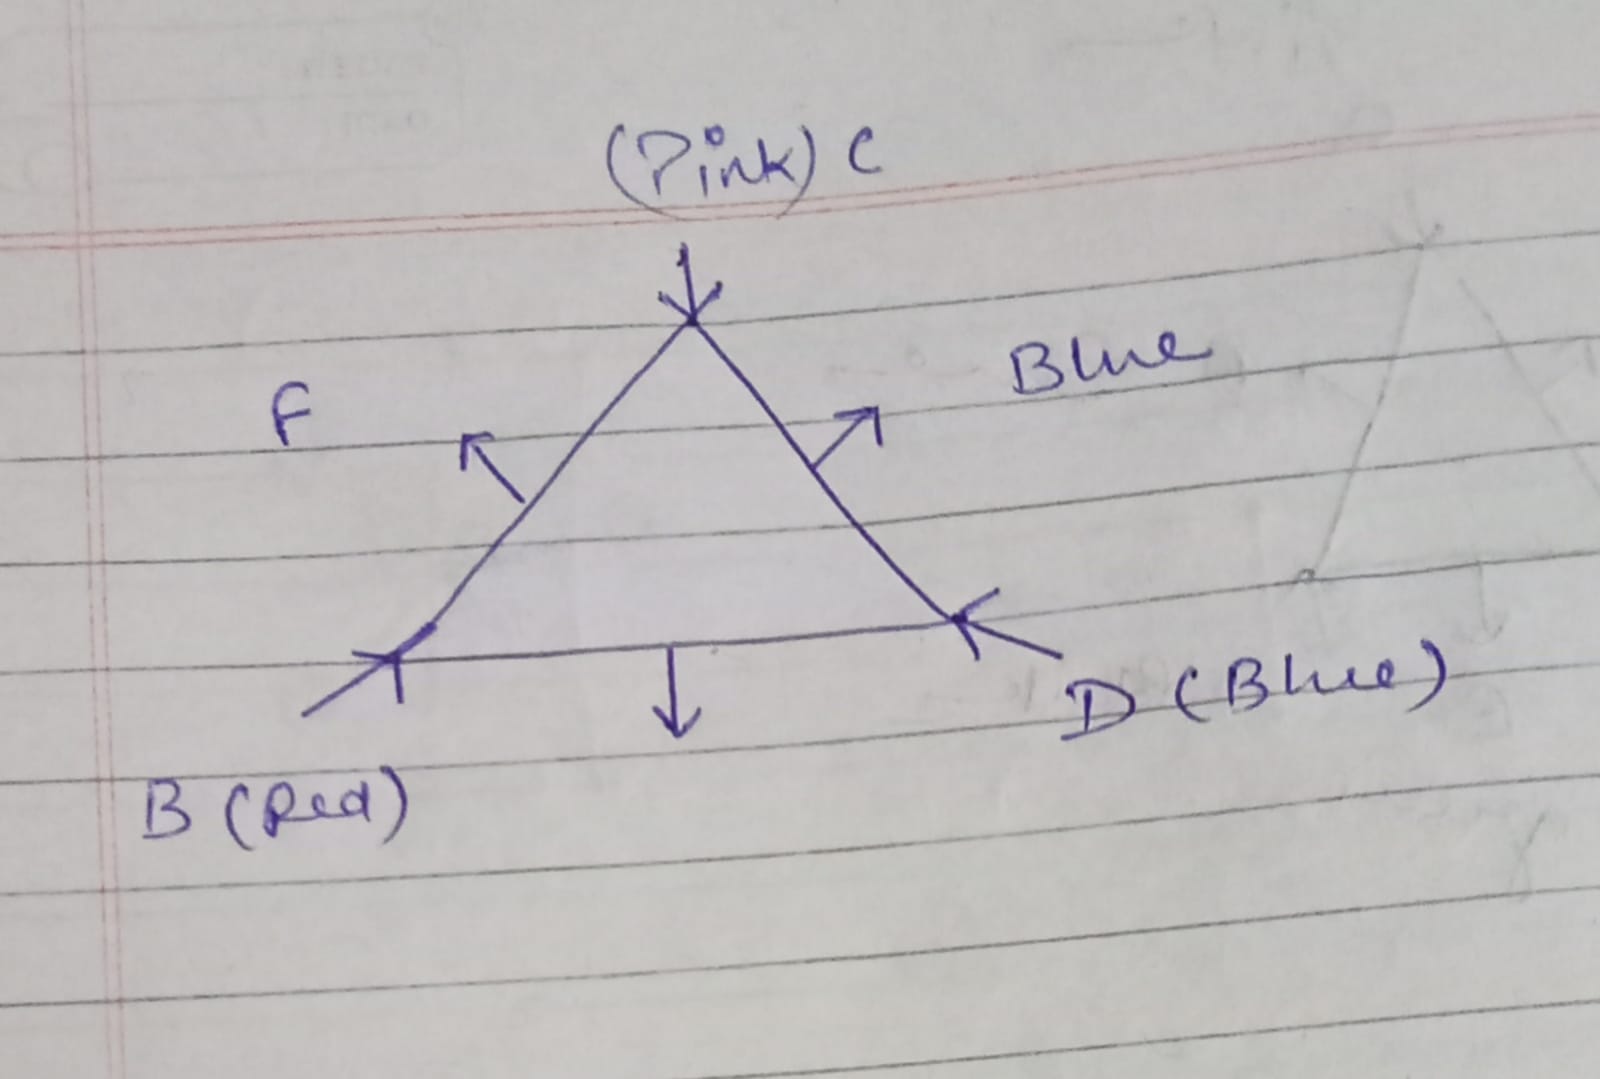 (Pink) C
Blue
F
D (Blue)
B (Red)